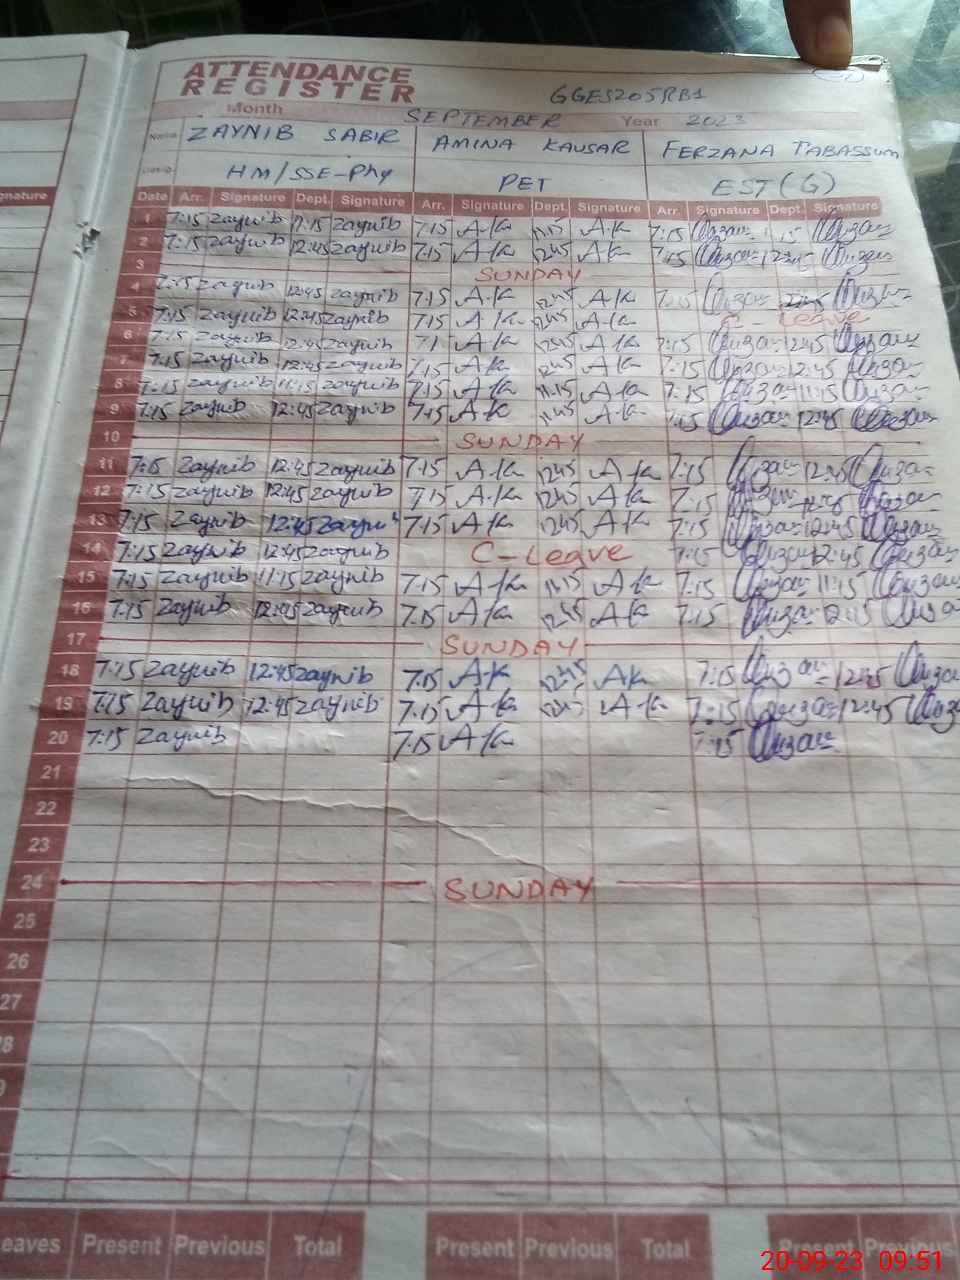 ATTENDANCE
REGISTER
GGES205RB1
Month SEPTEMBER Year 2023
Name ZAYNIB SABIR AMINA KAUSAR FERZANA TABASSUM
Desig. HM/SSE-Phy PET EST(G)
gnature Date Arr. Signature Dept. Signature Arr. Signature Dept. Signature Arr. Signature Dept. Signature
1 7:15 Zaynib 11:15 Zaynib 7.15 A.K 11.15 A.K 7:15
2 7:15 Zaynib 12:45 Zaynib 7.15 A.K 12.45 A.K
3 SUNDAY
4 7:15 Zaynib 12:45 Zaynib 7.15 A.K 12.45 A.K 7:15 12:45
5 7:15 Zaynib 12:45 Zaynib 7.15 A.K 12.45 A.K C-Leave
6 7:15 Zaynib 12:45 Zaynib 7.1 A.K 12.45 A.K 7:15 12:45
7 7:15 Zaynib 12:45 Zaynib 7.15 A.K 12.45 A.K 7:15 12:45
8 7:15 Zaynib 11:15 Zaynib 7.15 A.K 11.15 A.K 7:15 11:15
9 7:15 Zaynib 12:45 Zaynib 7.15 A.K A.K 7:15 12:45
10 SUNDAY
11 7:15 Zaynib 12:45 Zaynib 7.15 A.K 12.45 A.K 7:15 12:45
12 7:15 Zaynib 12:45 Zaynib 7.15 A.K 12.45 A.K 7:15 12:45
13 7:15 Zaynib 12:45 Zaynib 7.15 A.K 12.45 A.K 7:15 12:45
14 7:15 Zaynib 12:45 Zaynib C-Leave 7:15 12:45
15 7:15 Zaynib 11:15 Zaynib 7.15 A.K 11.15 A.K 7:15 11:15
16 7:15 Zaynib 12:45 Zaynib 7.15 A.K 12.45 A.K 7:15
17 SUNDAY
18 7:15 Zaynib 12:45 Zaynib 7.15 A.K 12.45 A.K 7:15 12:45
19 7:15 Zaynib 12:45 Zaynib 7.15 A.K A.K 7:15 12:45
20 7:15 Zaynib 7.15 A.K 7:15
21
22
23
24 SUNDAY
25
26
27
8
9
eaves Present Previous Total Present Previous Total Present Previous
20-09-23 09:51